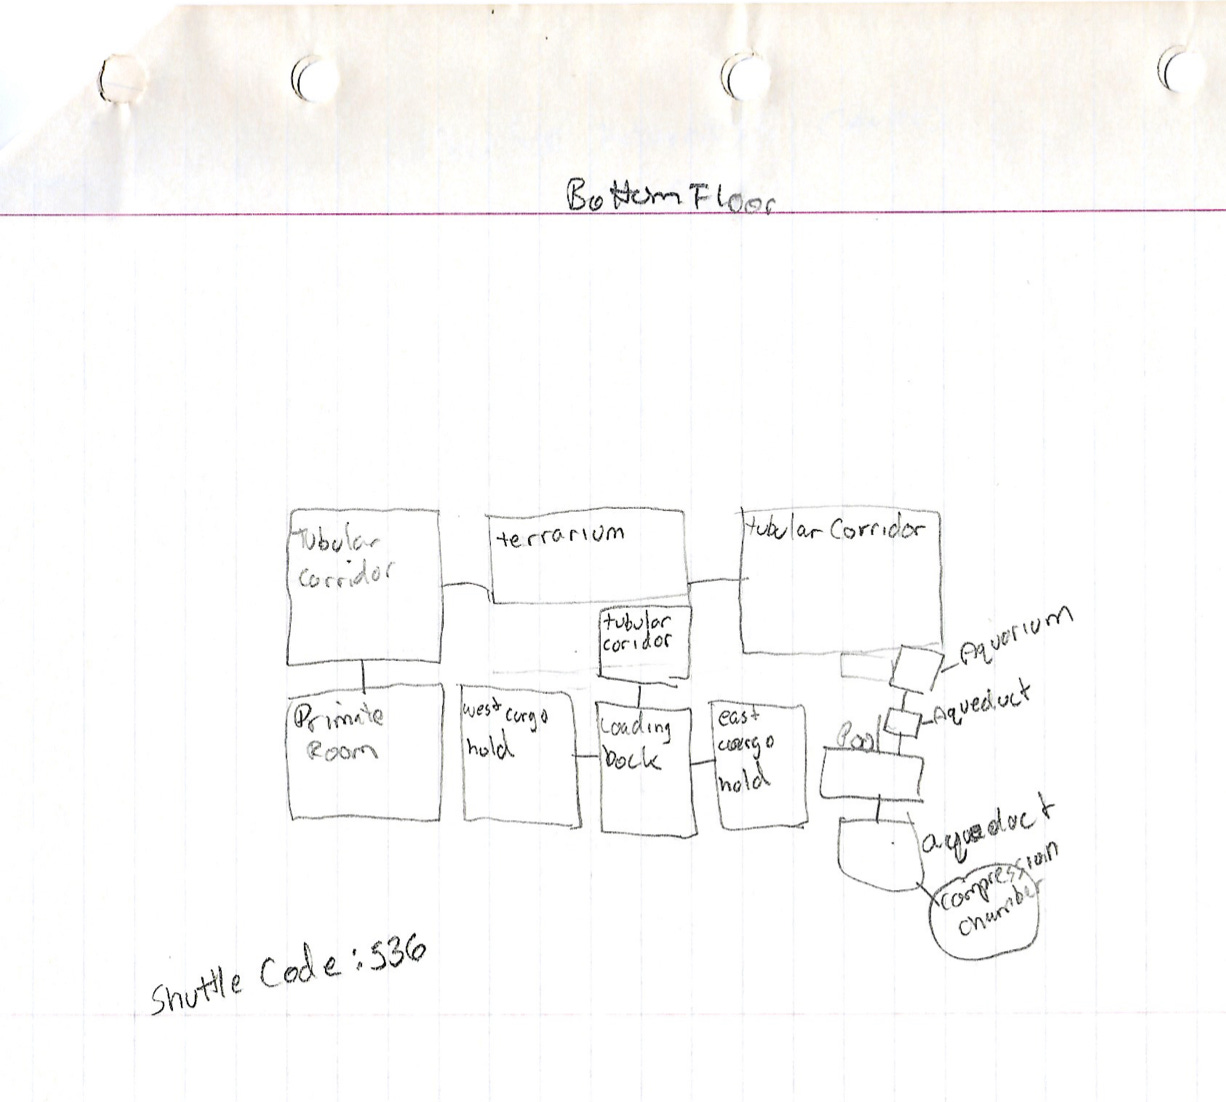 Bottom Floor
Tubular
corridor
terrarium
tubular Corridor
tubular
coridor
Aquarium
Aqueduct
Primate
Room
west cargo
hold
Loading
Dock
east
cargo
hold
Pool
aqueduct
compression
chamber
Shuttle Code: 536